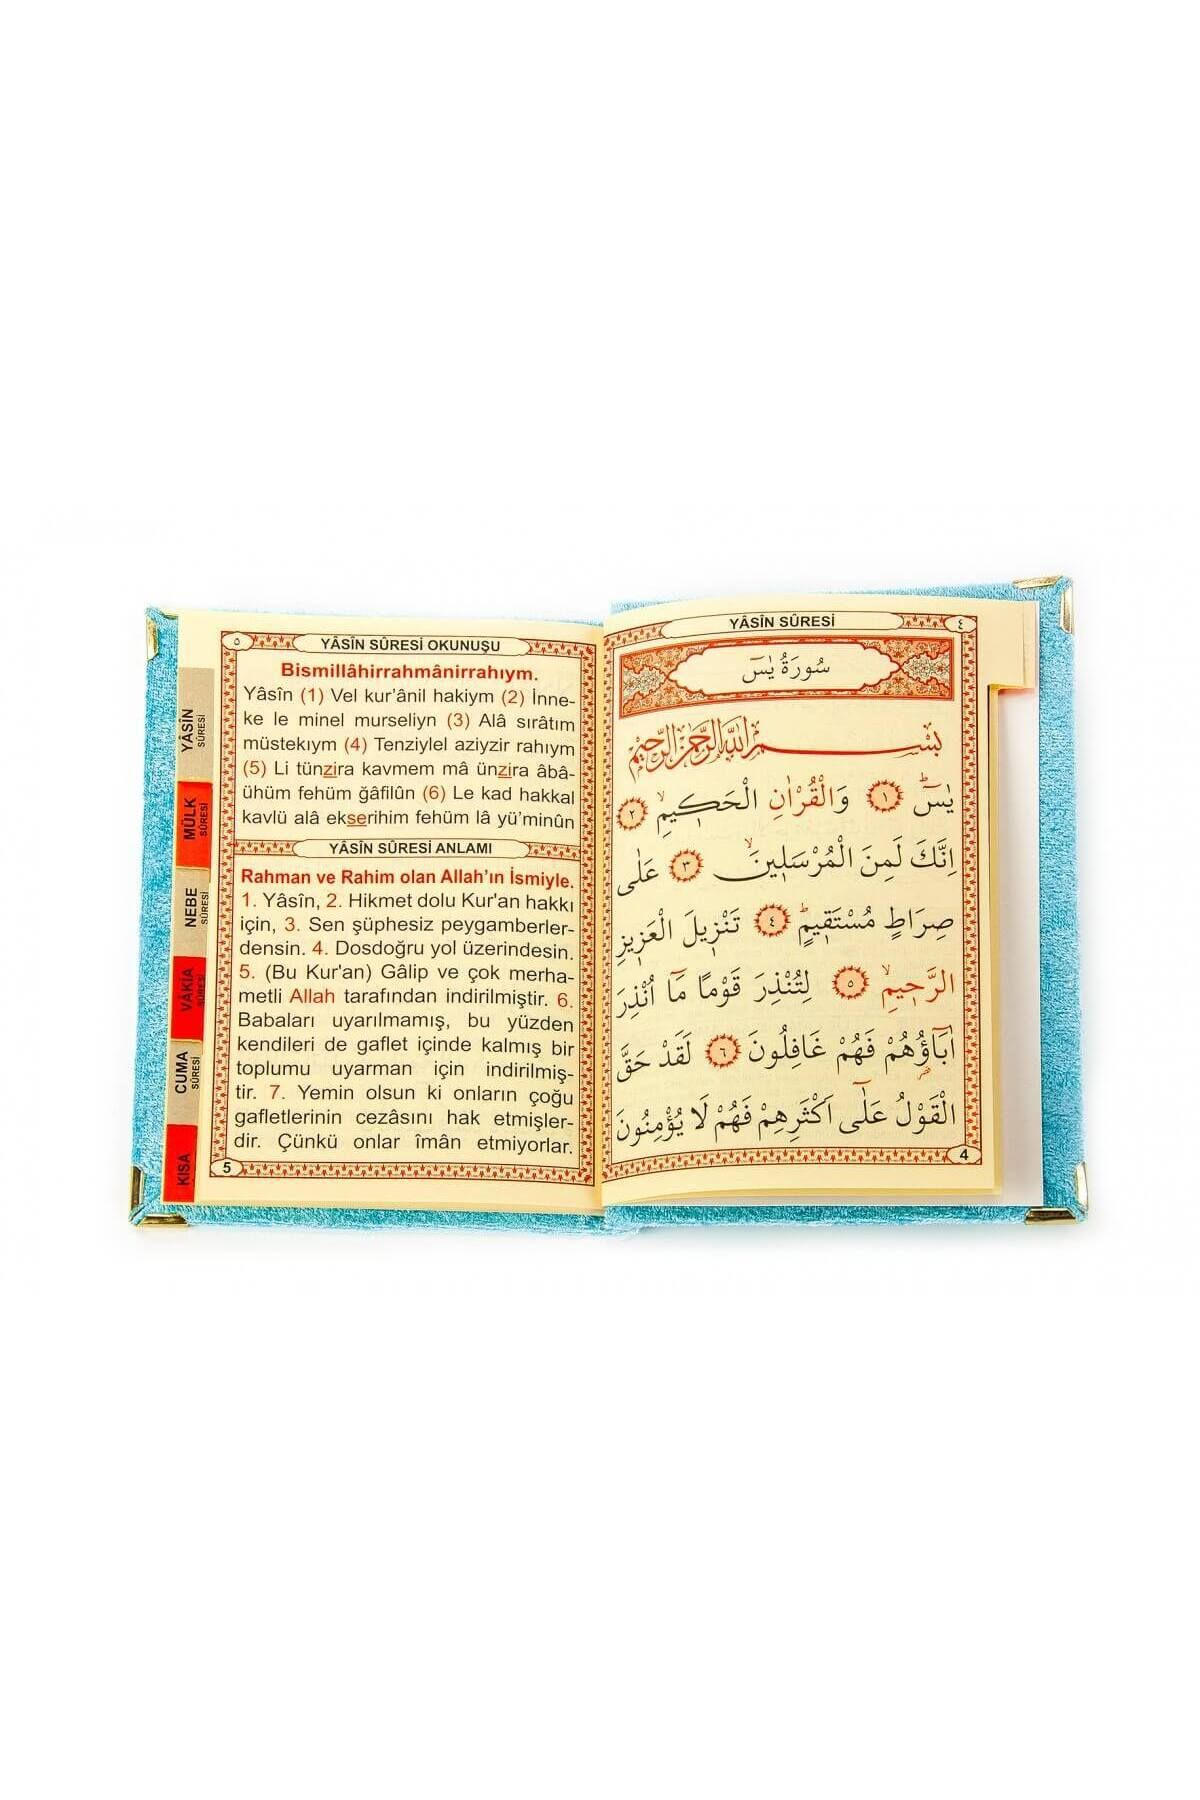 YÂSÎN SÛRESİ
٤
سُورَةُ يٰسٓ
بِسْمِ اللّٰهِ الرَّحْمٰنِ الرَّحِيمِ
يٰسٓۜ ١ وَالْقُرْاٰنِ الْحَكٖيمِۙ ٢
اِنَّكَ لَمِنَ الْمُرْسَلٖينَۙ ٣ عَلٰى
صِرَاطٍ مُسْتَقٖيمٍۜ ٤ تَنْزٖيلَ الْعَزٖيزِ
الرَّحٖيمِۙ ٥ لِتُنْذِرَ قَوْمًا مَٓا اُنْذِرَ
اٰبَٓاؤُ۬هُمْ فَهُمْ غَافِلُونَ ٦ لَقَدْ حَقَّ
الْقَوْلُ عَلٰٓى اَكْثَرِهِمْ فَهُمْ لَا يُؤْمِنُونَ
4
٥
YÂSÎN SÛRESİ OKUNUŞU
Bismillâhirrahmânirrahıym.
Yâsîn (1) Vel kur’ânil hakiym (2) İnne-
ke le minel murseliyn (3) Alâ sırâtım
müstekıym (4) Tenziylel aziyzir rahıym
(5) Li tünzira kavmem mâ ünzira âbâ-
ühüm fehüm ğâfilûn (6) Le kad hakkal
kavlü alâ ekserihim fehüm lâ yü’minûn
YÂSÎN SÛRESİ ANLAMI
Rahman ve Rahim olan Allah’ın İsmiyle.
1. Yâsîn, 2. Hikmet dolu Kur'an hakkı
için, 3. Sen şüphesiz peygamberler-
densin. 4. Dosdoğru yol üzerindesin.
5. (Bu Kur'an) Gâlip ve çok merha-
metli Allah tarafından indirilmiştir. 6.
Babaları uyarılmamış, bu yüzden
kendileri de gaflet içinde kalmış bir
toplumu uyarman için indirilmiş-
tir. 7. Yemin olsun ki onların çoğu
gafletlerinin cezâsını hak etmişler-
dir. Çünkü onlar îmân etmiyorlar.
5
YÂSÎN
SÛRESİ
MÜLK
SÛRESİ
NEBE
SÛRESİ
VÂKIA
SÛRESİ
CUMA
SÛRESİ
KISA